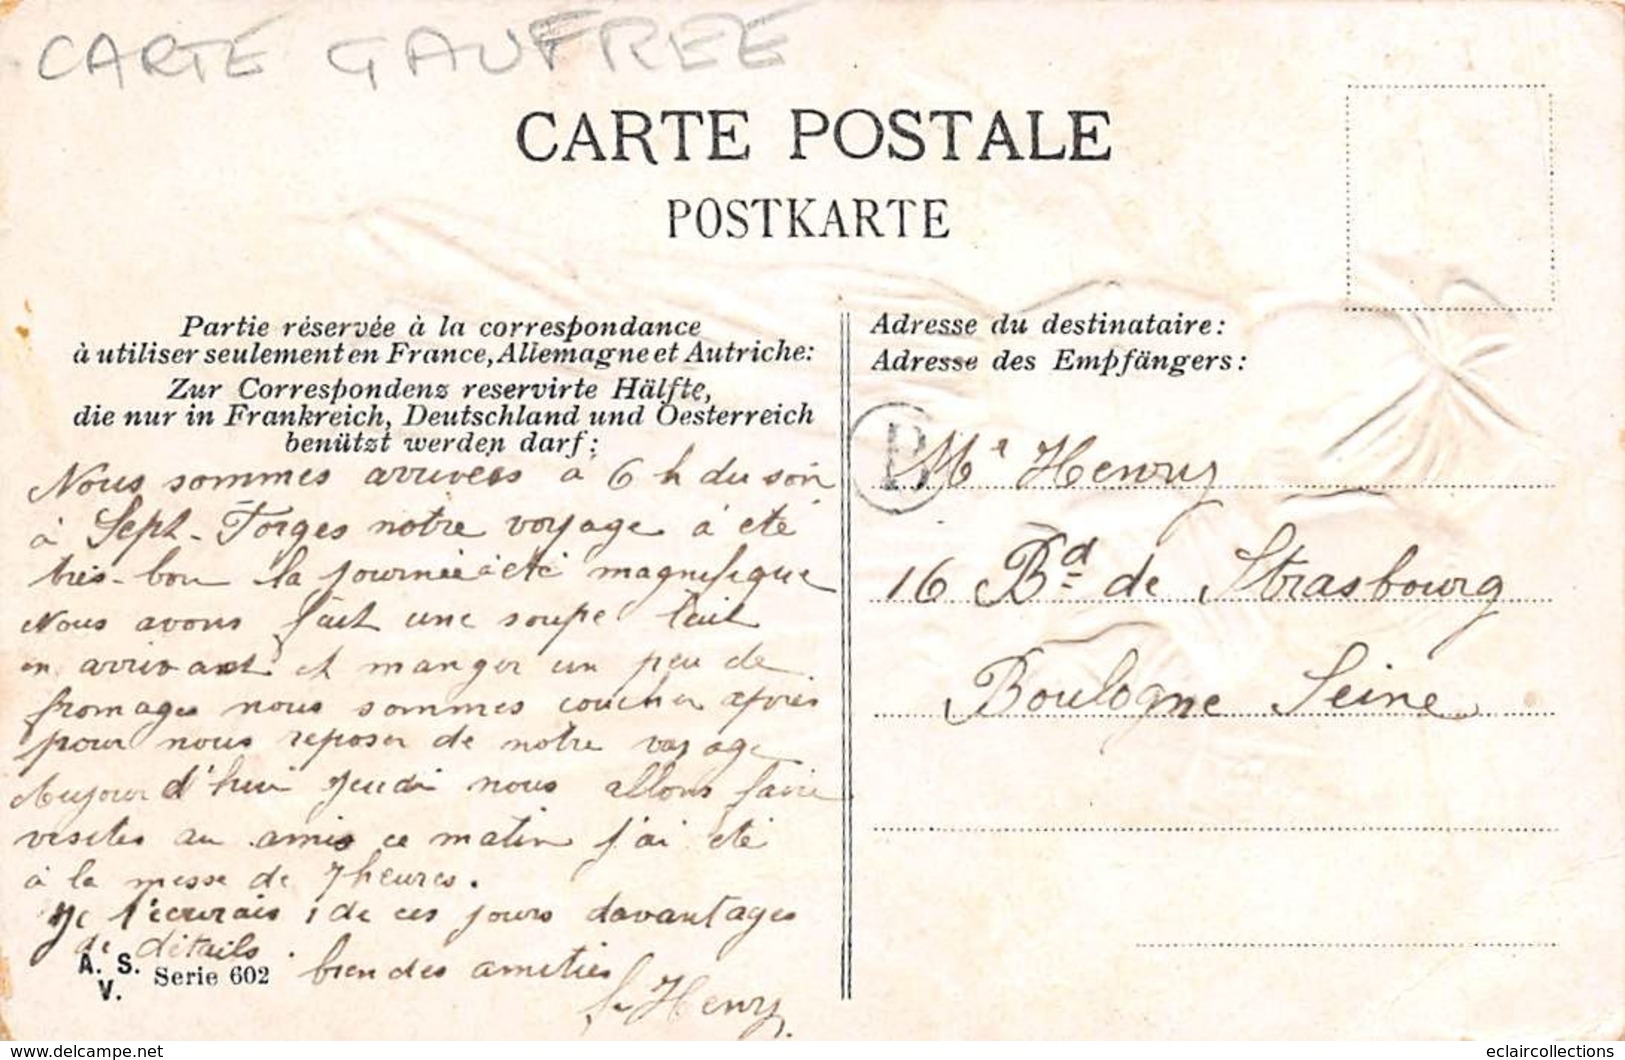 CARTE GAUFREE
CARTE POSTALE
POSTKARTE
Partie réservée à la correspondance
à utiliser seulement en France, Allemagne et Autriche:
Zur Correspondenz reservirte Hälfte,
die nur in Frankreich, Deutschland und Oesterreich
benützt werden darf:
Nous sommes arrivées à 6 h du soir
à Sept-Forges notre voyage à été
très-bon la journée à été magnifique
Nous avons fait une soupe lait
en arrivant et manger un peu de
fromages nous sommes coucher après
pour nous reposer de notre voyage
Aujourd'hui Jeudi nous allons faire
visites au amis ce matin j'ai été
à la messe de 7 heures.
Je t'écrirais de ces jours davantages
de détails.
bien des amitiés
Henry
A. S.
V.
Serie 602
Adresse du destinataire:
Adresse des Empfängers:
B
Mr Henry
16 Bd de Strasbourg
Boulogne Seine
https://www.delcampe.net
eclaircollections